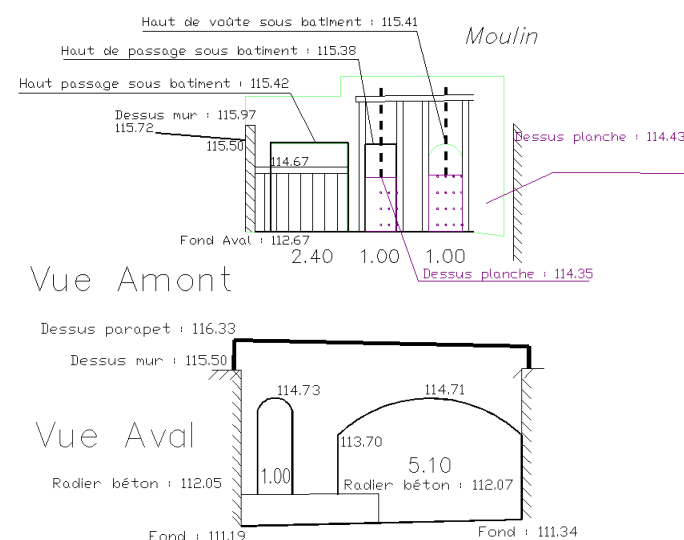 Haut de voûte sous batiment : 115.41
Moulin
Haut de passage sous batiment : 115.38
Haut passage sous batiment : 115.42
Dessus mur : 115.97
115.72
115.50
114.67
Dessus planche : 114.43
Fond Aval : 112.67
2.40
1.00
1.00
Dessus planche : 114.35
Vue Amont
Dessus parapet : 116.33
Dessus mur : 115.50
114.73
114.71
Vue Aval
113.70
5.10
1.00
Radier béton : 112.05
Radier béton : 112.07
Fond : 111.19
Fond : 111.34